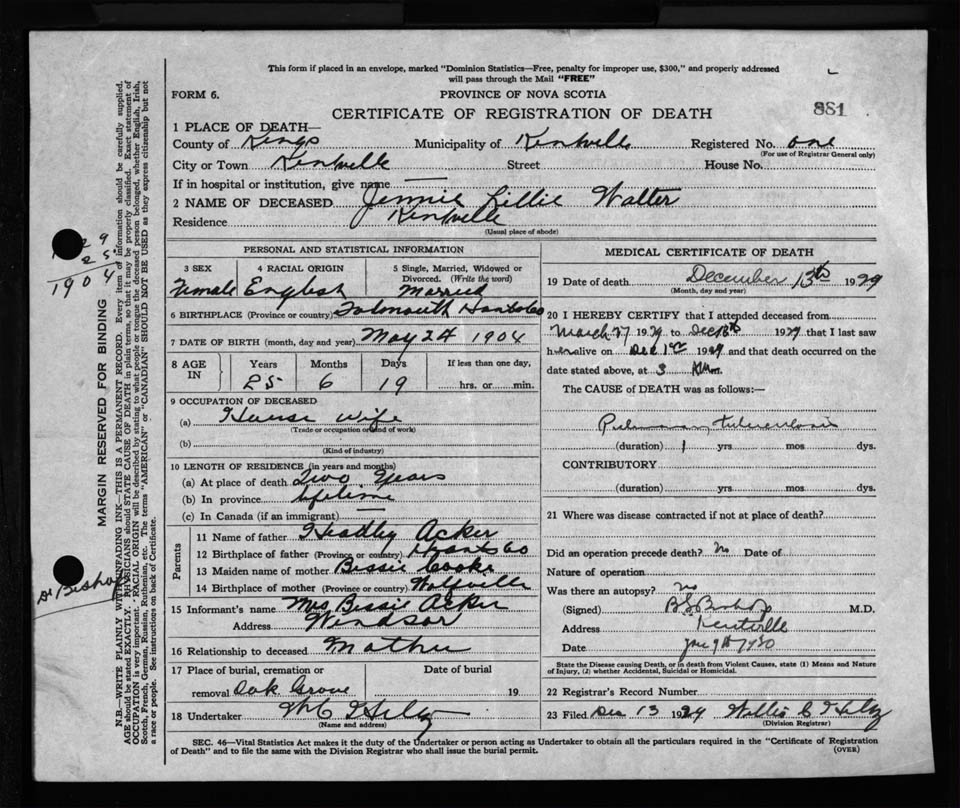 This form if placed in an envelope, marked "Dominion Statistics—Free, penalty for improper use, $300," and properly addressed
will pass through the Mail "FREE"
FORM 6. PROVINCE OF NOVA SCOTIA
CERTIFICATE OF REGISTRATION OF DEATH 881
1 PLACE OF DEATH—
County of Kings Municipality of Kentville Registered No. one
(For use of Registrar General only)
City or Town Kentville Street House No.
If in hospital or institution, give name
2 NAME OF DECEASED Jennie Lillie Walter
Residence Kentville
(Usual place of abode)
PERSONAL AND STATISTICAL INFORMATION
3 SEX 4 RACIAL ORIGIN 5 Single, Married, Widowed or
Divorced. (Write the word)
Female English Married
6 BIRTHPLACE (Province or country) Falmouth Hants Co
7 DATE OF BIRTH (month, day and year) May 24 1904
8 AGE IN Years Months Days If less than one day,
25 6 19 hrs. or min.
9 OCCUPATION OF DECEASED
(a) House wife
(Trade or occupation or kind of work)
(b)
(Kind of industry)
10 LENGTH OF RESIDENCE (in years and months)
(a) At place of death Two Years
(b) In province Lifetime
(c) In Canada (if an immigrant)
Parents
11 Name of father Headley Acker
12 Birthplace of father (Province or country) Hants Co
13 Maiden name of mother Bessie Cooke
14 Birthplace of mother (Province or country) Wolfville
15 Informant's name Mrs Bessie Acker
Address Windsor
16 Relationship to deceased Mother
17 Place of burial, cremation or Date of burial
removal Oak Grove 19
18 Undertaker
(Name and address)
MEDICAL CERTIFICATE OF DEATH
19 Date of death December 13th 1929
(Month, day and year)
20 I HEREBY CERTIFY that I attended deceased from
March 27 1929 to Dec 13th 1929 that I last saw
her alive on Dec 1929 and that death occurred on the
date stated above, at 3 m.
The CAUSE OF DEATH was as follows:—
Pulmonary tuberculosis
(duration) 1 yrs mos dys.
CONTRIBUTORY
(duration) yrs. mos. dys.
21 Where was disease contracted if not at place of death?
Did an operation precede death? No Date of
Nature of operation
Was there an autopsy? No
(Signed) Bishop M.D.
Address Kentville
Date 9th 1930
State the Disease causing Death, or in death from Violent Causes, state (1) Means and Nature
of Injury, (2) whether Accidental, Suicidal or Homicidal.
22 Registrar's Record Number
23 Filed Dec 13 1929 Willis C
(Division Registrar)
SEC. 46—Vital Statistics Act makes it the duty of the Undertaker or person acting as Undertaker to obtain all the particulars required in the "Certificate of Registration
of Death" and to file the same with the Division Registrar who shall issue the burial permit. (OVER)
MARGIN RESERVED FOR BINDING
N.B.—WRITE PLAINLY WITH UNFADING INK—THIS IS A PERMANENT RECORD. Every item of information should be carefully supplied.
AGE should be stated EXACTLY. PHYSICIANS should STATE CAUSE OF DEATH in plain terms, so that it may be properly classified. Exact statement of
OCCUPATION is very important. RACIAL ORIGIN will be described by stating to what people or tongue the deceased person belonged, whether English, Irish,
Scotch, French, German, Russian, Ruthenian, etc. The terms "AMERICAN" or "CANADIAN" SHOULD NOT BE USED as they express citizenship but not
a race or people. See instructions on back of Certificate.
29
25
1904
Dr Bishop